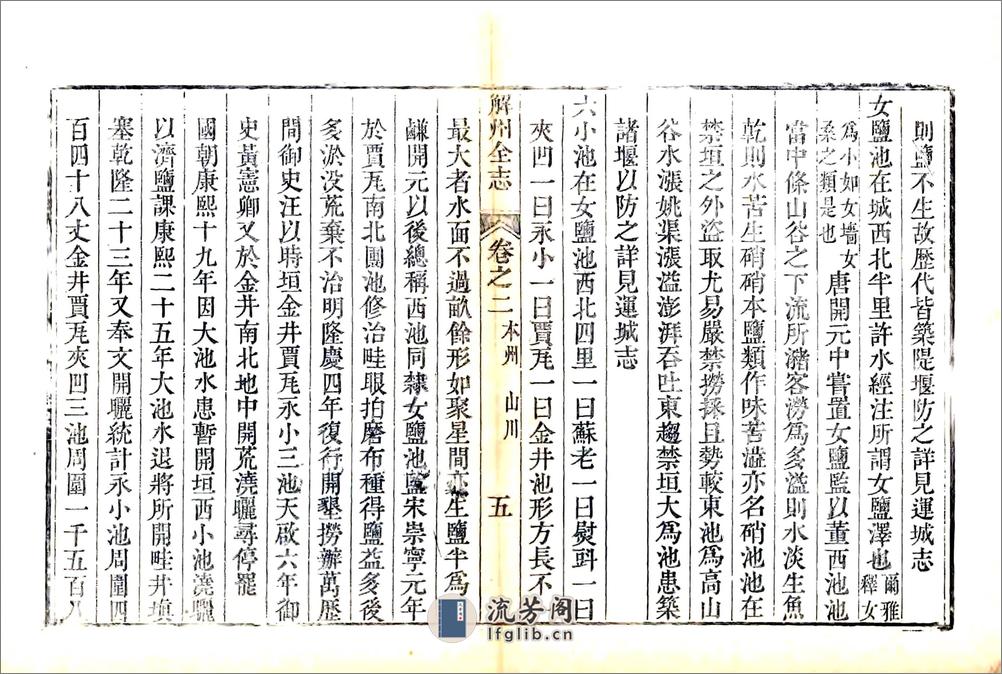 則鹽不生故歷代皆築隄堰防之詳見運城志
女鹽池在城西北半里許水經注所謂女鹽澤也爾雅釋女
為小如女墻女桑之類是也唐開元中嘗置女鹽監以董西池池
當中條山谷之下流所瀦客澇為多溢則水淡生魚
乾則水苦生硝硝本鹽類作味苦溢亦名硝池池在
禁垣之外盜取尤易嚴禁撈採且勢較東池為高山
谷水漲姚渠漲溢澎湃吞吐東趨禁垣大為池患築
諸堰以防之詳見運城志
六小池在女鹽池西北四里一曰蘇老一曰熨斗一曰
夾凹一曰永小一曰賈瓦一曰金井池形方長不一
解州全志 卷之二 本州 山川 五
最大者水面不過畝餘形如聚星間亦生鹽半為
鹻開元以後總稱西池同隸女鹽池監宋崇寧元年
於賈瓦南北團池修治畦眼拍磨布種得鹽益多後
多淤没荒棄不治明隆慶四年復行開墾撈辦萬歷
間御史汪以時垣金井賈瓦永小三池天啟六年御
史黃憲卿又於金井南北地中開荒澆曬尋停罷
國朝康熙十九年因大池水患暫開垣西小池澆曬
以濟鹽課康熙二十五年大池水退將所開畦井填
塞乾隆二十三年又奉文開曬統計永小池周圍四
百四十八丈金井賈瓦夾凹三池周圍一千五百八
流芳阁
lfglib.cn